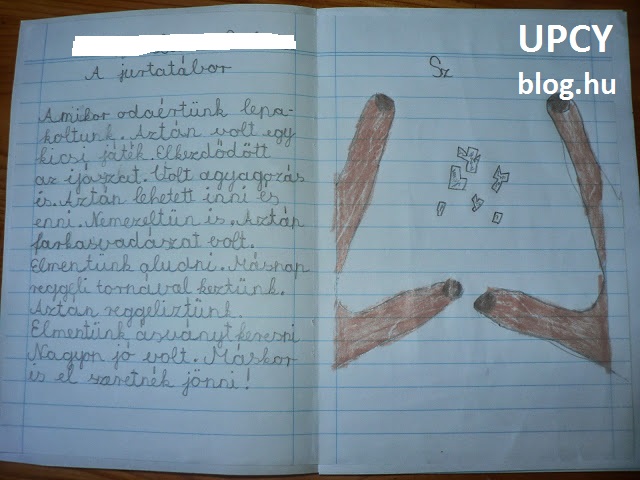 A jurtatábor
Amikor odaértünk lepa-
koltunk. Aztán volt egy
kicsi játék. Elkezdődött
az ijászat. Volt agyagozás
is. Aztán lehetett inni és
enni. Nemezeltün is. Aztán
farkasvadászat volt.
Elmentünk aludni. Másnap
reggeli tornával keztünk.
Aztán reggeliztünk.
Elmentünk ásványt keresni
Nagyon jó volt. Máskor
is el szeretnék jönni!
Sz
UPCY
blog.hu